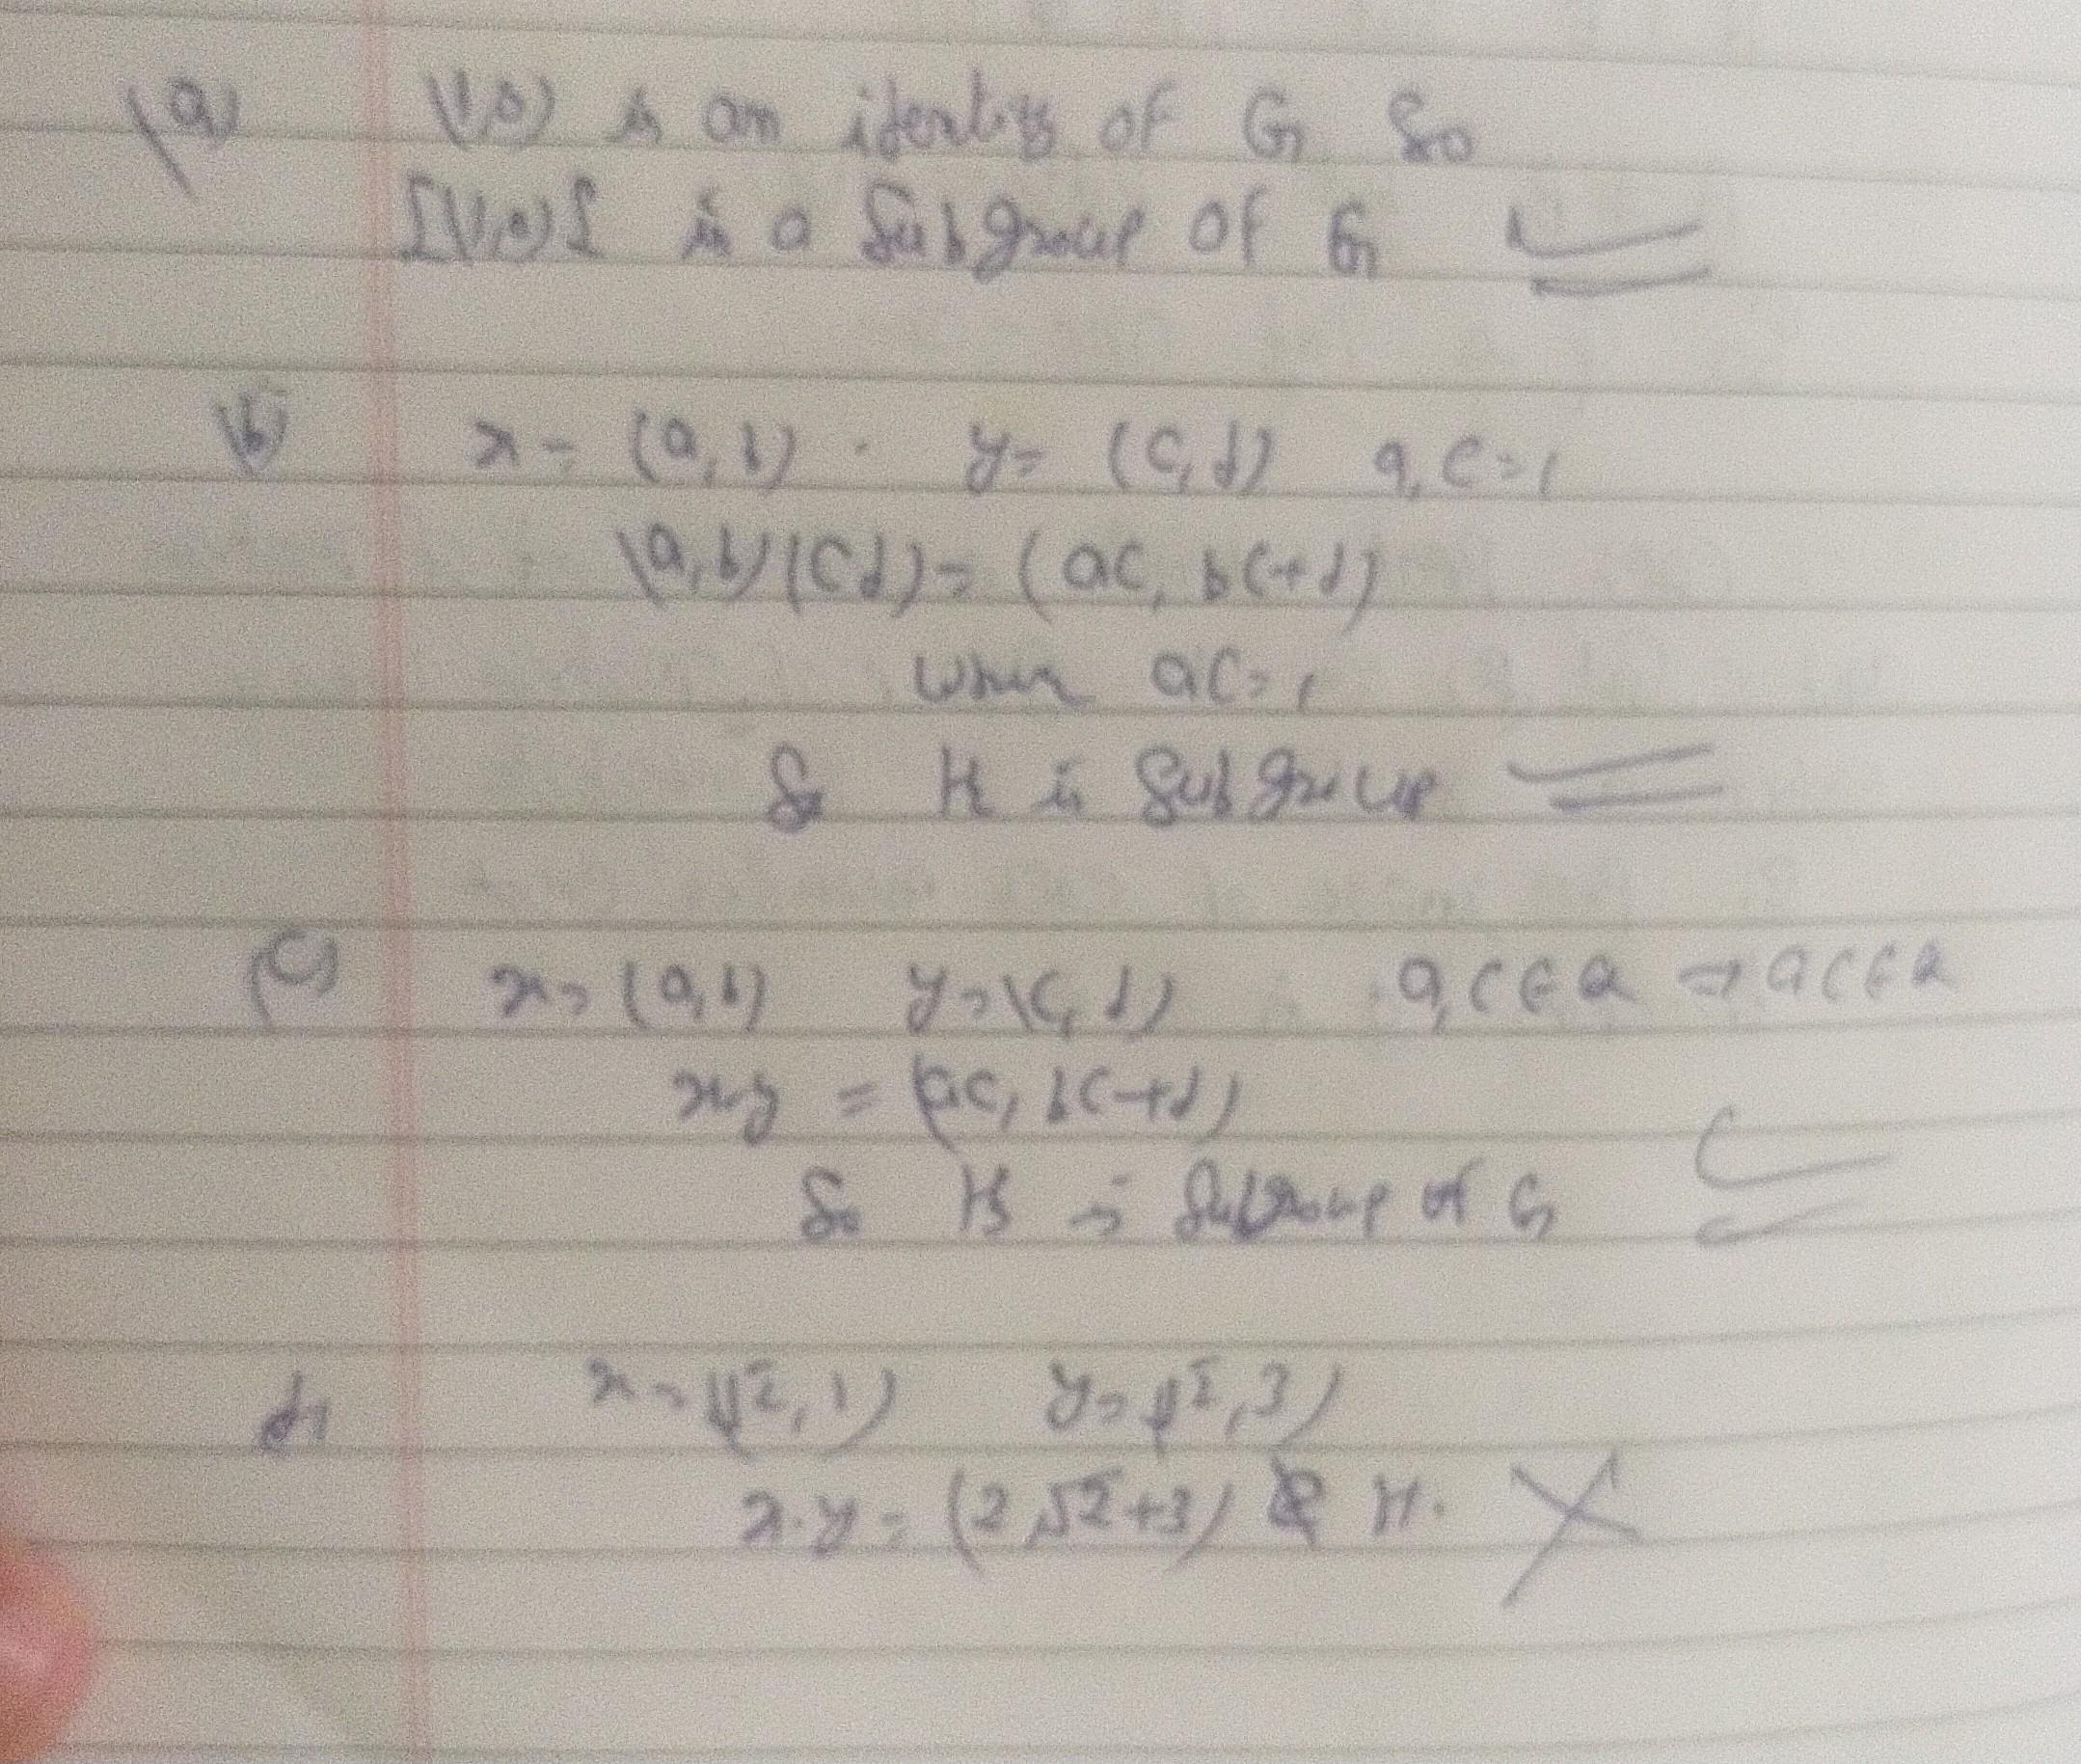 (a) (1,0) is an identity of G So
{(1,0)} is a Subgroup of G
(b) x = (a, b) . y = (c, d) a, c = 1
(a, b) (c d) = (ac, bc+d)
when ac = 1
So H is Subgroup
(c) x = (a, b) y = (c, d) a, c ∈ Q ⇒ ac ∈ Q
x.y = (ac, bc+d)
So H is Subgroup of G
d) x = (√2, 1) y = (√2, 3)
x.y = (2, √2+3) ∉ H.